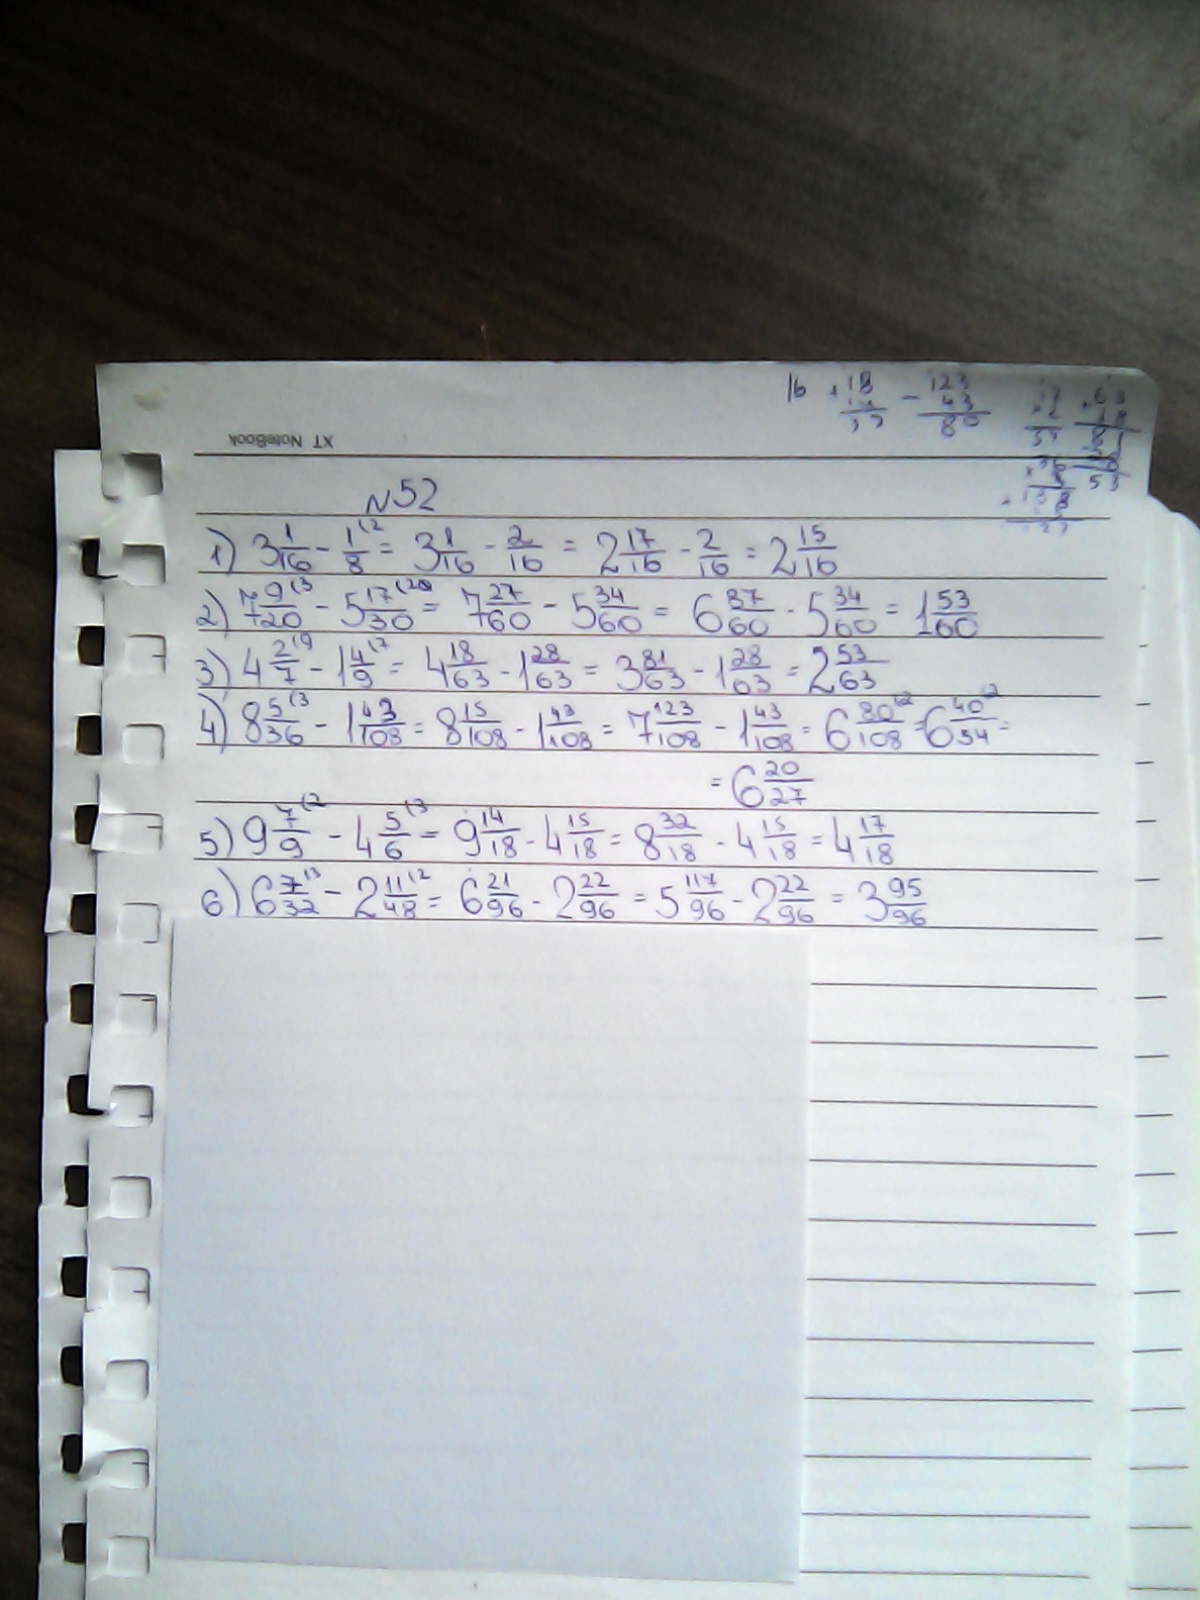 XT NoteBook
16 18 - 123 43 80
N52
1) 3 1/16 - 1/8 (2 = 3 1/16 - 2/16 = 2 17/16 - 2/16 = 2 15/16
2) 7 9/20 (3 - 5 17/30 (2 = 7 27/60 - 5 34/60 = 6 87/60 - 5 34/60 = 1 53/60
3) 4 2/7 (9 - 1 4/9 (7 = 4 18/63 - 1 28/63 = 3 81/63 - 1 28/63 = 2 53/63
4) 8 5/36 (3 - 1 43/108 = 8 15/108 - 1 43/108 = 7 123/108 - 1 43/108 = 6 80/108 (2 = 6 40/54 (2 =
= 6 20/27
5) 9 7/9 (2 - 4 5/6 (3 = 9 14/18 - 4 15/18 = 8 32/18 - 4 15/18 = 4 17/18
6) 6 7/32 (3 - 2 11/48 (2 = 6 21/96 - 2 22/96 = 5 117/96 - 2 22/96 = 3 95/96